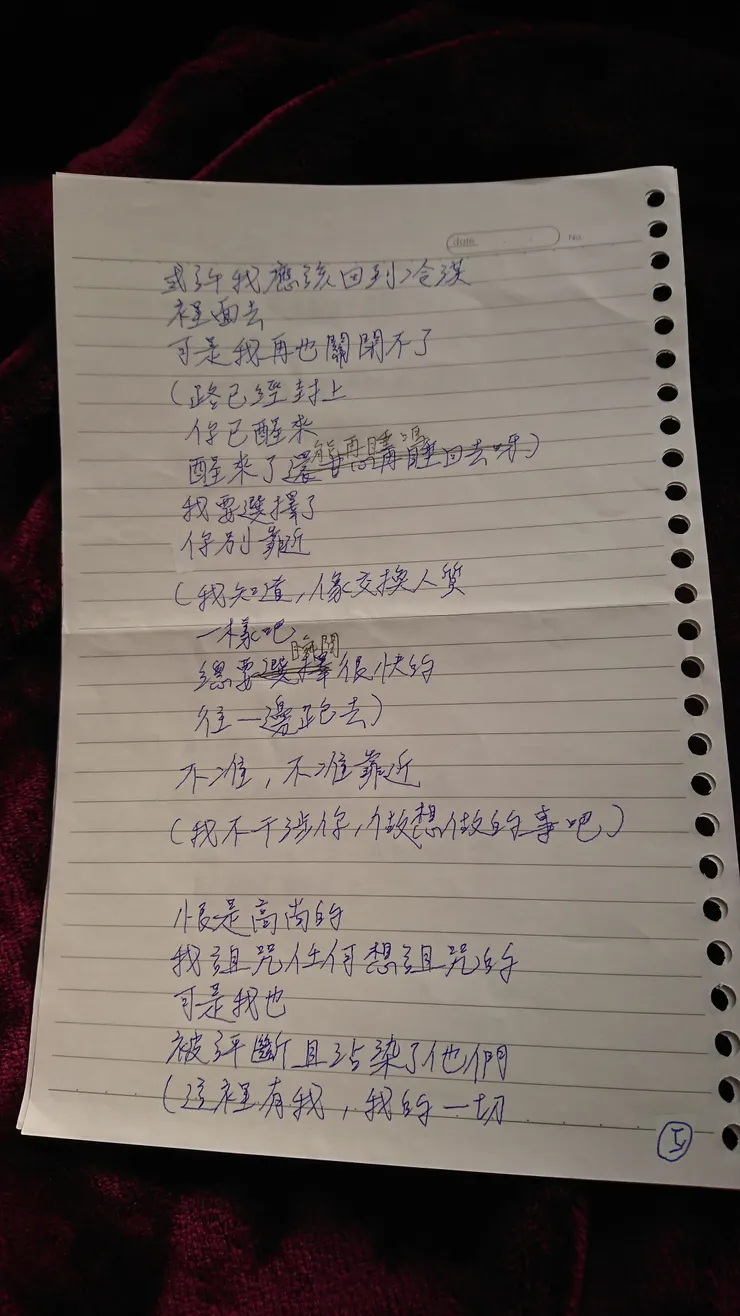 date No
或許我應該回到冷漠
裡面去
可是我再也關閉不了
(路已經封上
你已醒來
能再睡過
醒來了還能再睡回去呀)
我要選擇了
你別靠近
(我知道,像交換人質
一樣吧
瞬間
總要選擇很快的
往一邊跑去)
不准,不准靠近
(我不干涉你,做想做的事吧)
恨是高尚的
我詛咒任何想詛咒的
可是我也
被評斷且沾染了他們
(這裡有我,我的一切